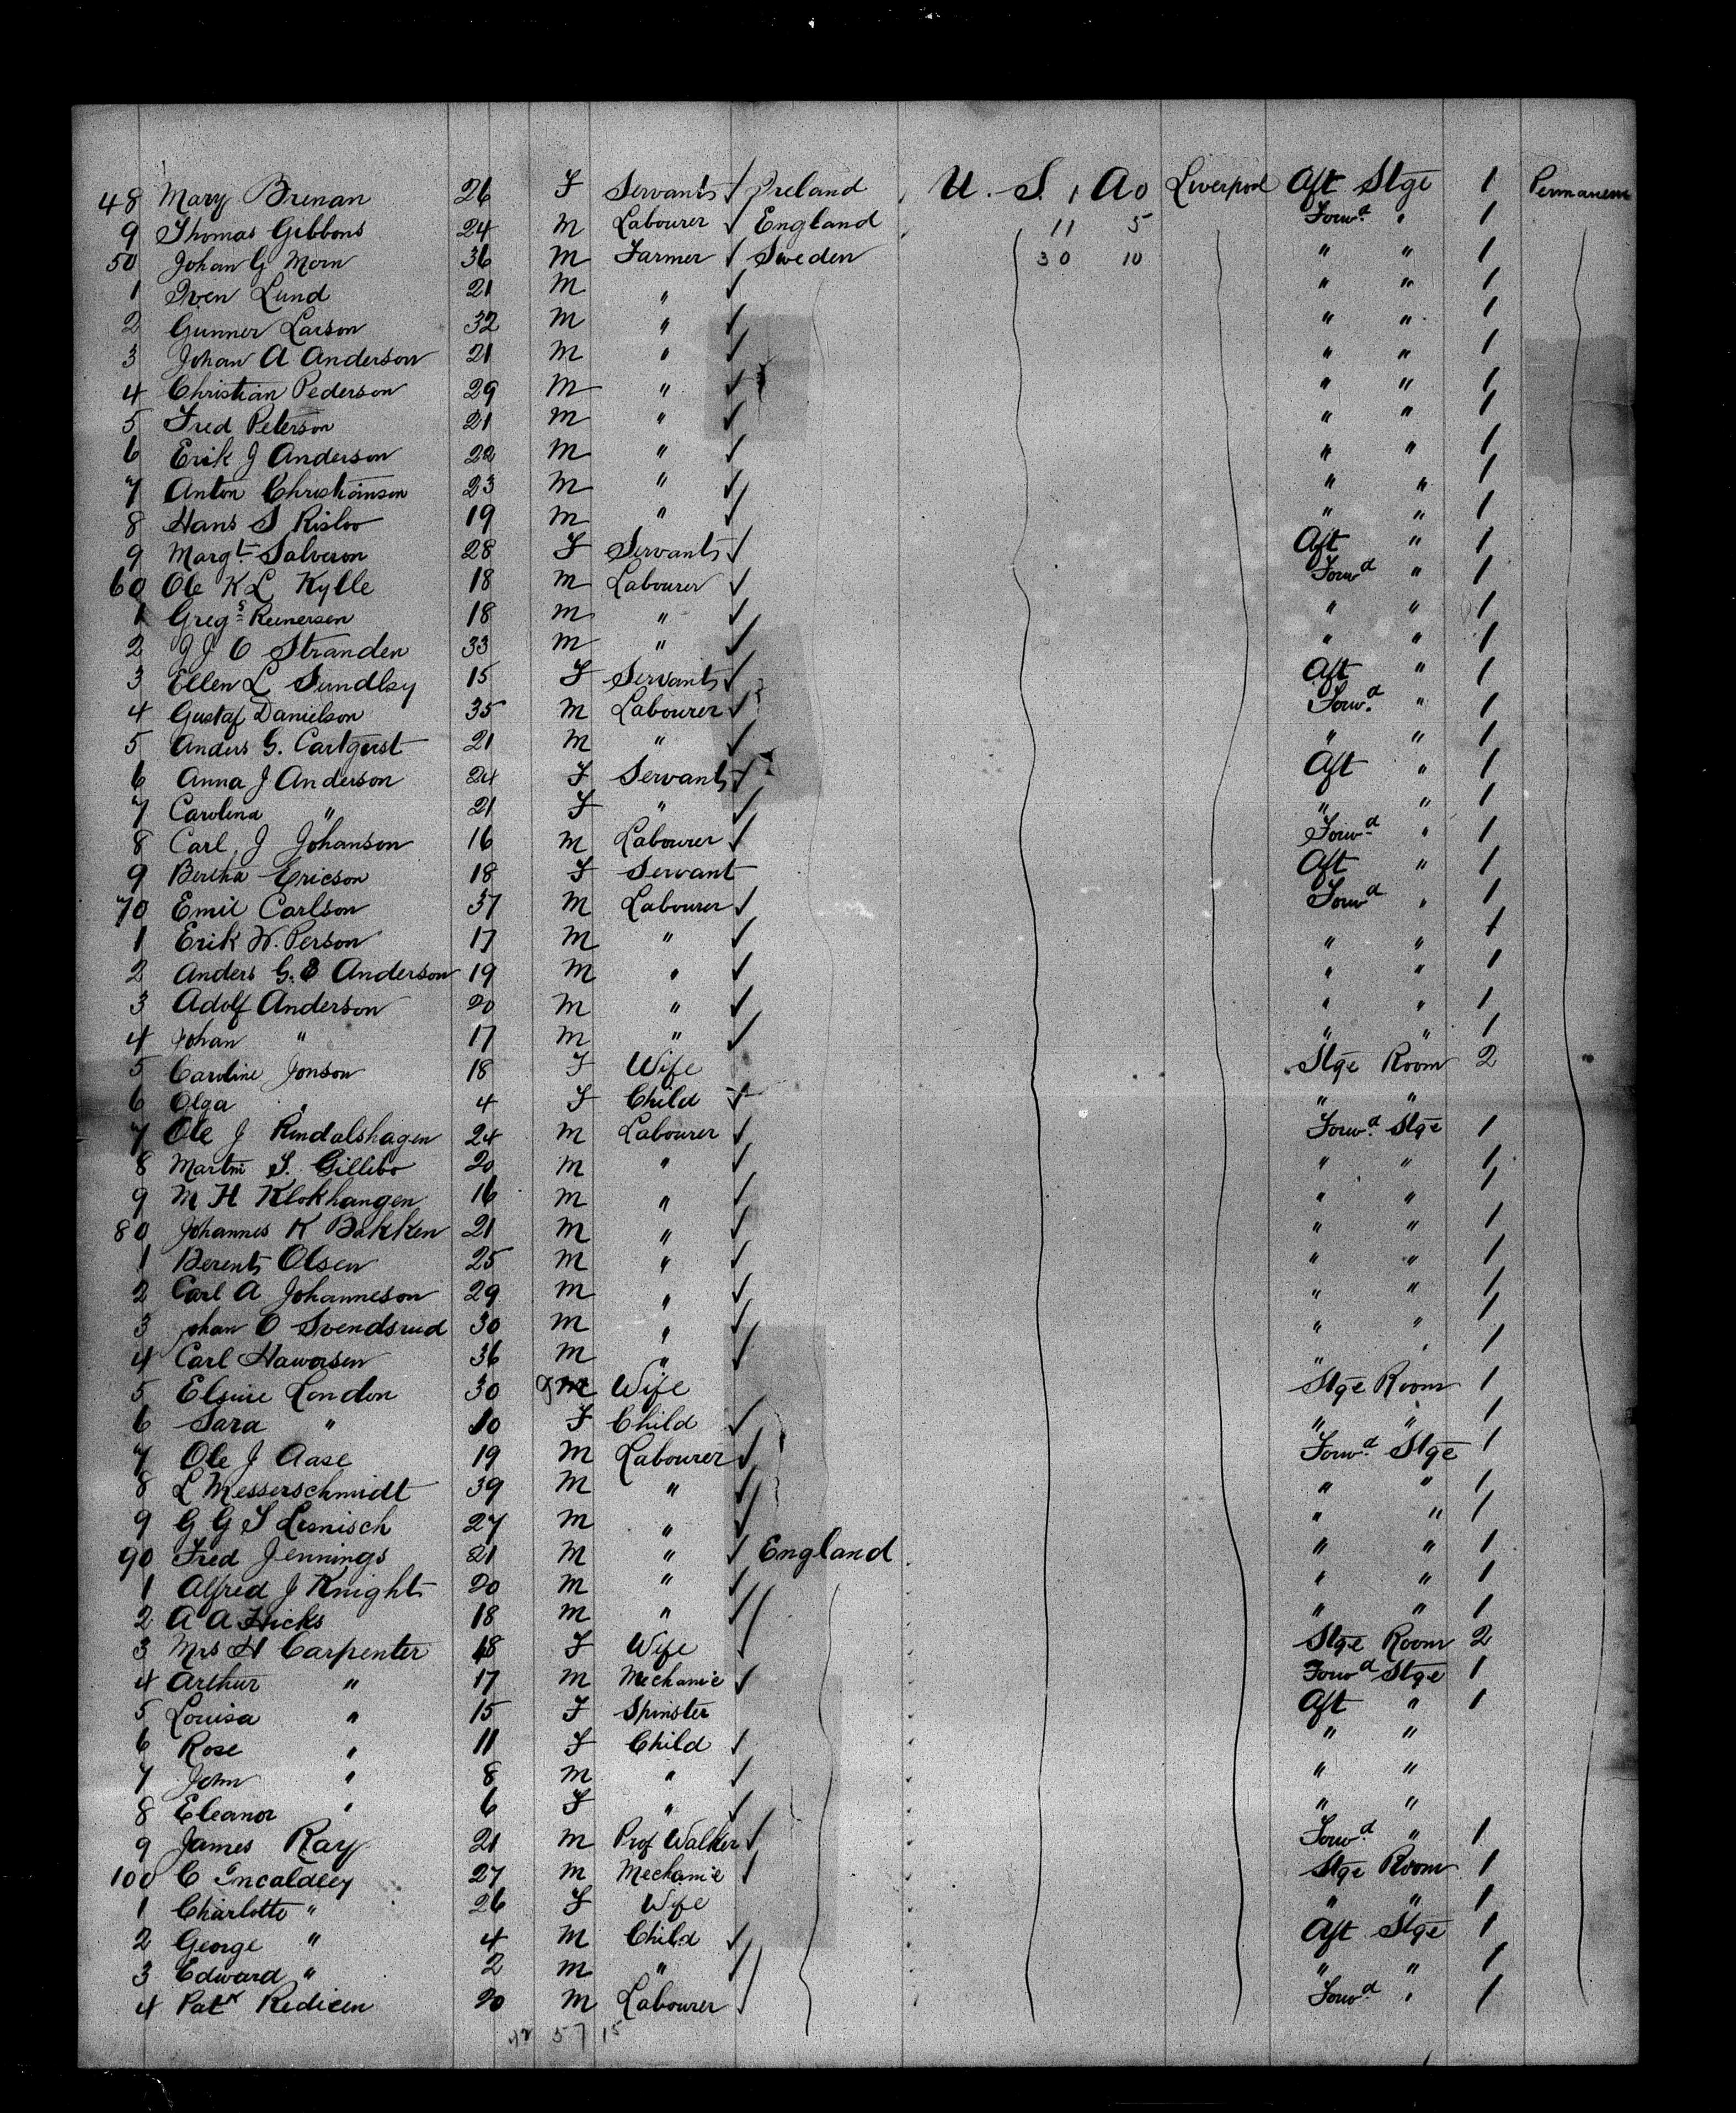 48 Mary Brenan 26 F Servants ✓ Ireland U. S. A. Liverpool Aft Stge 1 Permanent
9 Thomas Gibbons 24 M Labourer ✓ England 11 5 Forwd " 1
50 Johan G Morn 36 M Farmer ✓ Sweden 30 10 " " 1
1 Sven Lund 21 M " ✓ " " 1
2 Gunner Larson 32 M " ✓ " " 1
3 Johan A Anderson 21 M " ✓ " " 1
4 Christian Pederson 29 M " ✓ " " 1
5 Fred Peterson 21 M " ✓ " " 1
6 Erik J Anderson 22 M " ✓ " " 1
7 Anton Christiansen 23 M " ✓ " " 1
8 Hans S 19 M " ✓ " " 1
9 Margt Salveson 28 F Servants ✓ Aft " 1
60 Ole K L Kylle 18 M Labourer ✓ Forwd " 1
1 Gregs Reinersen 18 M " ✓ " " 1
2 J J O Stranden 33 M " ✓ " " 1
3 Ellen L Sundlsy 15 F Servants ✓ Aft " 1
4 Gustaf Danielson 35 M Labourer ✓ Forwd " 1
5 Anders G. Carlqerst 21 M " ✓ " " 1
6 Anna J Anderson 24 F Servants ✓ Aft " 1
7 Carolina " 21 F " ✓ " " 1
8 Carl J Johanson 16 M Labourer ✓ Forwd " 1
9 Bertha Ericson 18 F Servant Aft " 1
70 Emil Carlson 37 M Labourer ✓ Forwd " 1
1 Erik W. Person 17 M " ✓ " " 1
2 Anders G. E Anderson 19 M " ✓ " " 1
3 Adolf Anderson 20 M " ✓ " " 1
4 Johan " 17 M " ✓ " " 1
5 Caroline Jonson 18 F Wife Stge Room 2
6 Olga " 4 F Child ✓ " "
7 Ole J Rindalshagen 24 M Labourer ✓ Forwd Stge 1
8 Martin S. Gillebo 20 M " ✓ " " 1
9 M H Klokhangen 16 M " ✓ " " 1
80 Johannes K Bakken 21 M " ✓ " " 1
1 Berents Olsen 25 M " ✓ " " 1
2 Carl A Johanneson 29 M " ✓ " " 1
3 Johan O Svendsrud 30 M " ✓ " " 1
4 Carl Haworsen 36 M " ✓ " " 1
5 London 30 Wife Stge Room 1
6 Sara " 10 F Child ✓ " " 1
7 Ole J Aase 19 M Labourer ✓ Forwd Stge 1
8 L Messerschmidt 39 M " ✓ " " 1
9 G G S Lisnisch 27 M " ✓ " " 1
90 Fred Jennings 21 M " ✓ England " " 1
1 Alfred J Knight 20 M " ✓ " " 1
2 A A Hicks 18 M " ✓ " " 1
3 Mrs H Carpenter F Wife Stge Room 2
4 Arthur " 17 M Mechanic ✓ Forwd Stge 1
5 Louisa " 15 F Spinster Aft " 1
6 Rose " 11 F Child ✓ " "
7 John " 8 M " ✓ " "
8 Eleanor " 6 F " ✓ " "
9 James Ray 21 M Prof Walker ✓ Forwd " 1
100 C Incaldley 27 M Mechanic ✓ Stge Room 1
1 Charlotte " 26 F Wife " " 1
2 George " 4 M Child ✓ Aft Stge 1
3 Edward " 2 M " ✓ " " 1
4 Patk Redicen 20 M Labourer ✓ Forwd " 1
42 57 15